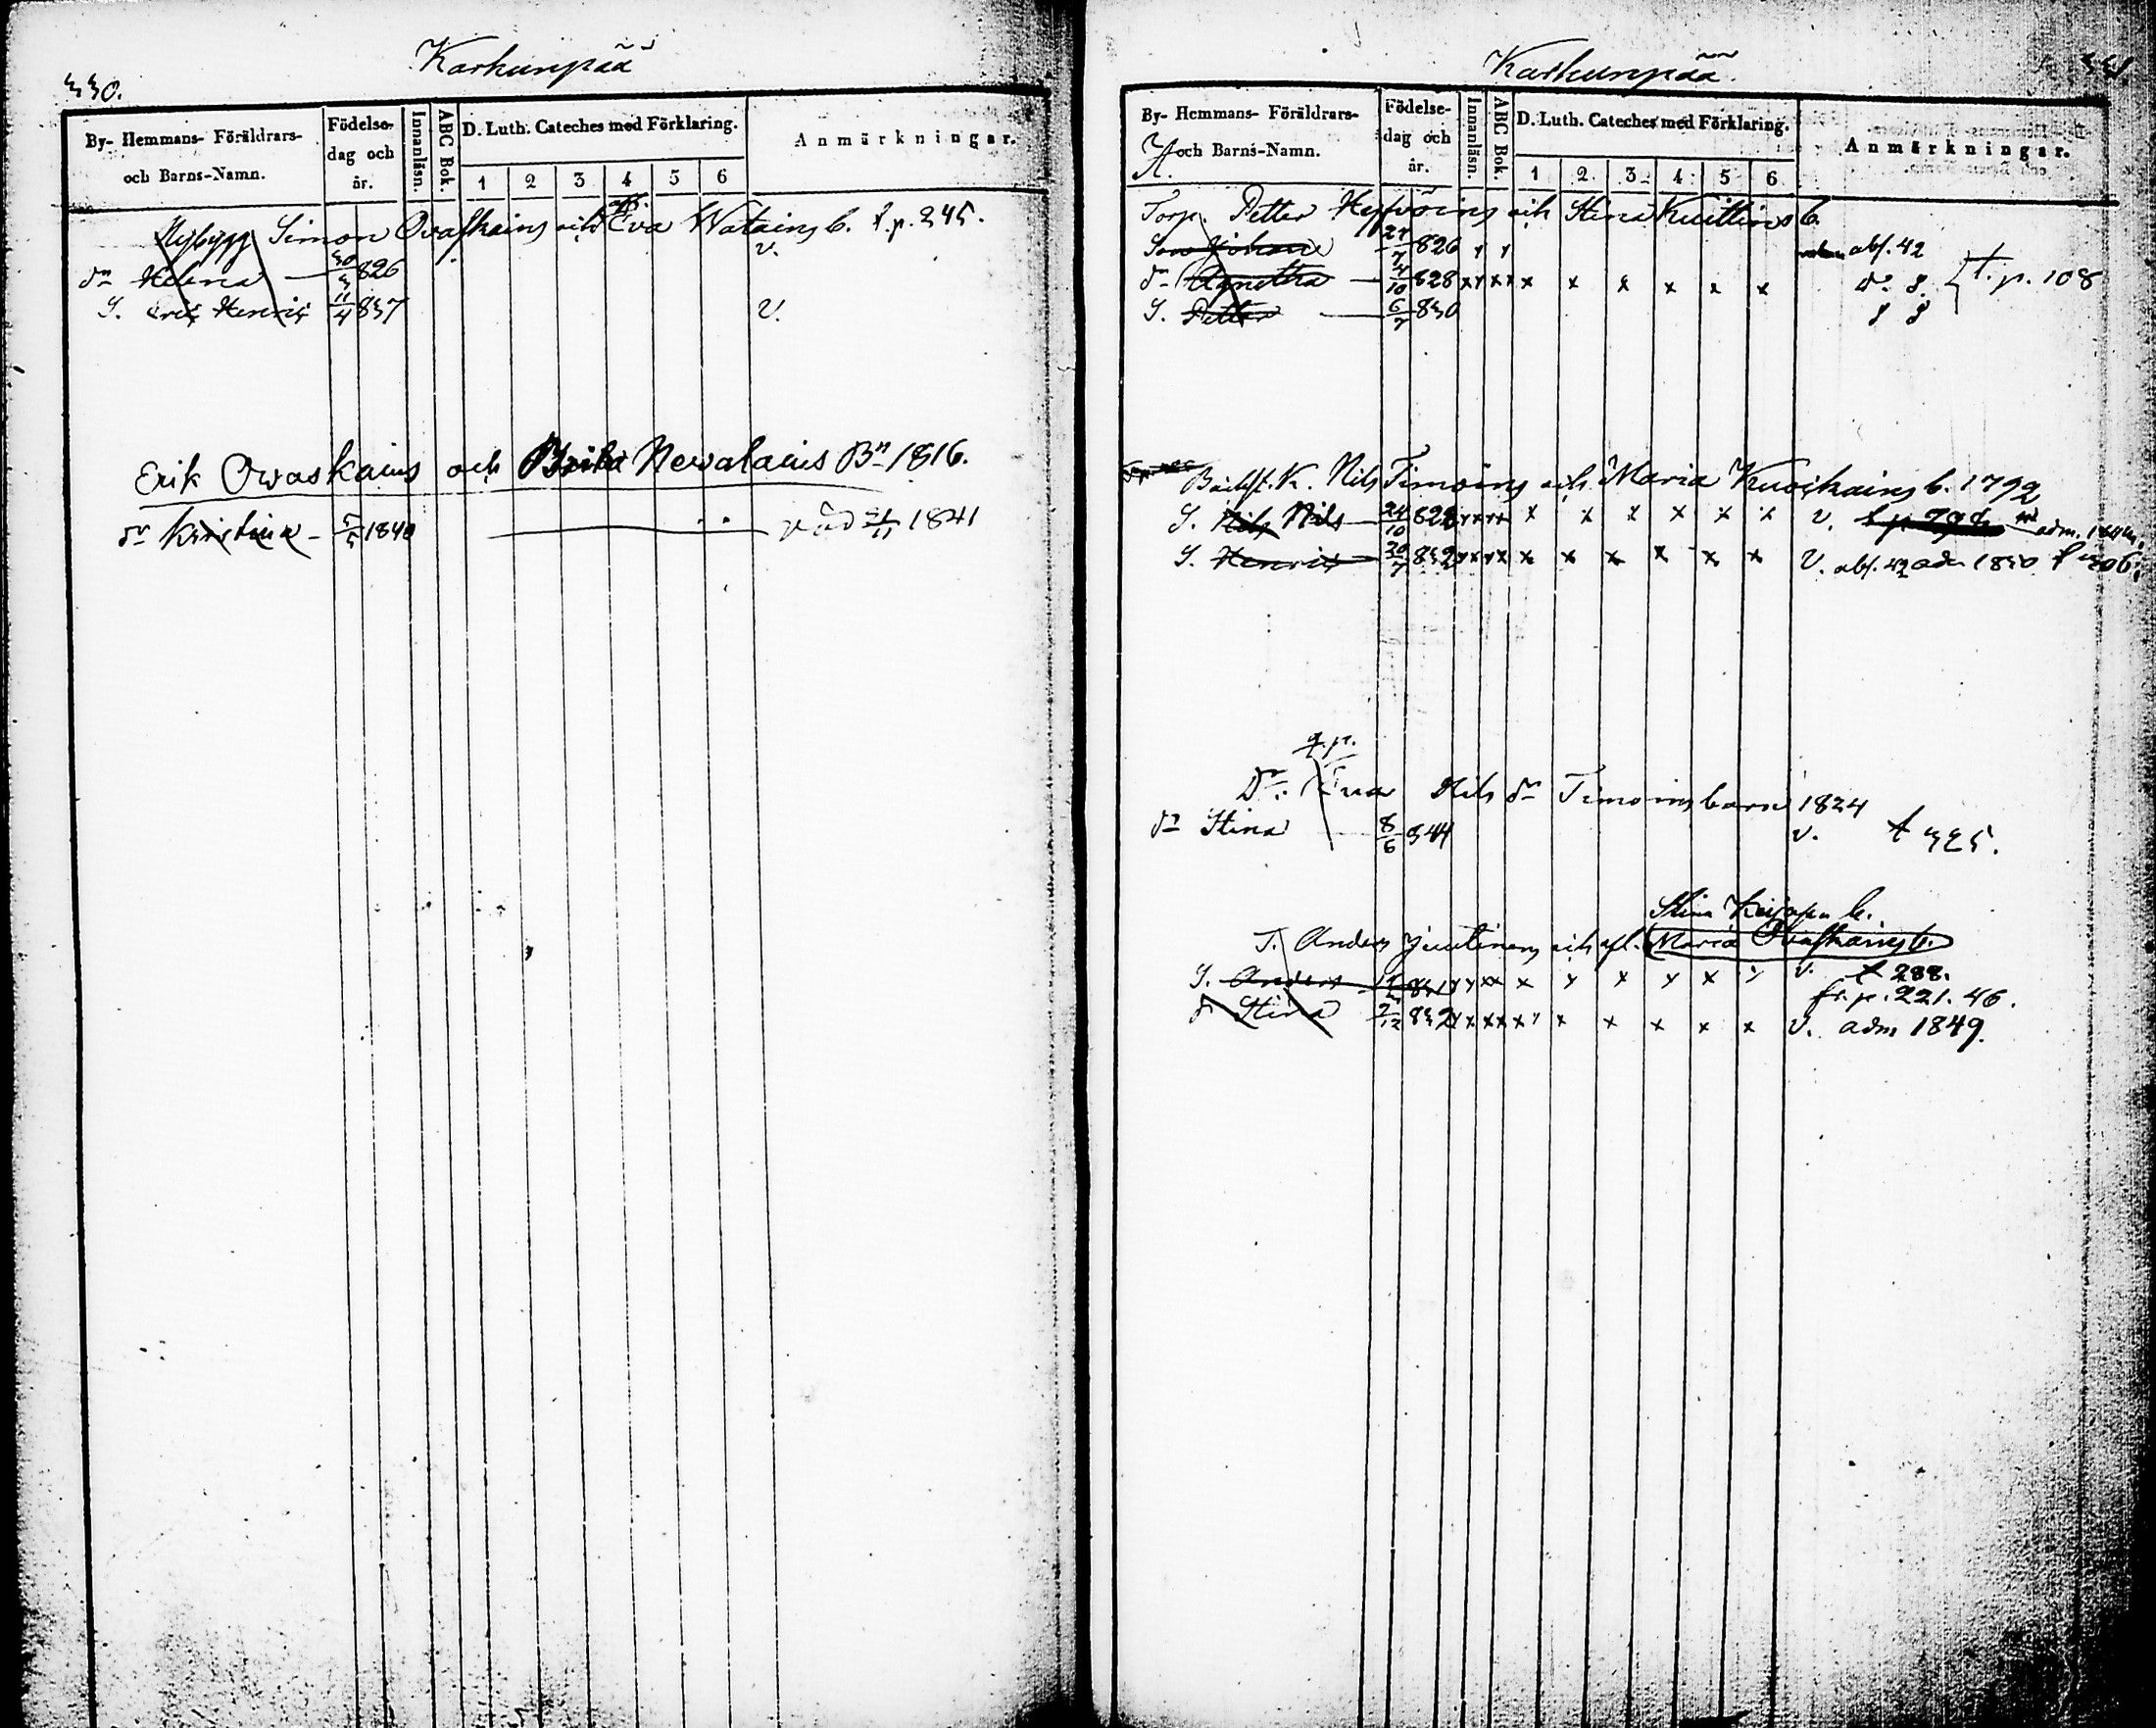 330.
Karhunpää
By- Hemmans- Föräldrars-
och Barns-Namn.
Födelse-
dag och
år.
Innanläsn.
ABC Bok.
D. Luth. Cateches med Förklaring.
1 2 3 4 5 6
Anmärkningar.
Nybygg Simon Ovaskains och Eva Watains b. t.p. 345.
dr Helena 30/3 826 v.
S. Eric Henric 11/4 837 v.
Erik Owaskains och Brita Newalains Bn 1816.
dr Kristina 5/5 1840 död 1841
331
Karhunpää.
By- Hemmans- Föräldrars-
och Barns-Namn.
Födelse-
dag och
år.
Innanläsn.
ABC Bok.
D. Luth. Cateches med Förklaring.
1 2 3 4 5 6
Anmärkningar.
Torp. Petter Hyvöins och Stina Kuittins b.
Son Johan 24/7 826 x x abs. 42
dr Agnetha 4/10 828 xx xx x x x x x x t.p. 108
S. Petter 6/7 830
Nils Timoins och Maria Kuoskains b. 1792
S. Nils Nils 24/10 828 xx xx x x x x x x v. adm. 1844.
S. Henric 20/7 832 xx xx x x x x x x v. abs. 42 adm 1850 t 306.
q.p.
Dr: Eva Nils dr Timoins barn 1824
dr Stina 8/6 844 v. t 325.
Stina Keijosen b.
T. Anders Juutinens och afl. Maria Ovaskains b.
S. Anders 831 xx xx x x x x x x v. t 288.
fr. p. 221. 46.
dr Stina 2/12 832 xx xx xx x x x x x v. adm 1849.